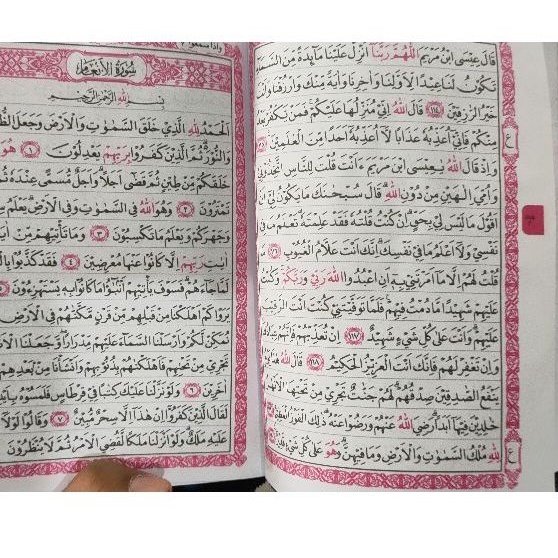 قَالَ عِيسَى ابْنُ مَرْيَمَ اللّٰهُمَّ رَبَّنَا أَنْزِلْ عَلَيْنَا مَائِدَةً مِنَ السَّمَاءِ
تَكُونُ لَنَا عِيدًا لِأَوَّلِنَا وَآخِرِنَا وَآيَةً مِنْكَ وَارْزُقْنَا وَأَنْتَ
خَيْرُ الرَّازِقِينَ ﴿١١٤﴾ قَالَ اللّٰهُ إِنِّي مُنَزِّلُهَا عَلَيْكُمْ فَمَنْ يَكْفُرْ بَعْدُ
مِنْكُمْ فَإِنِّي أُعَذِّبُهُ عَذَابًا لَا أُعَذِّبُهُ أَحَدًا مِنَ الْعَالَمِينَ
وَإِذْ قَالَ اللّٰهُ يٰعِيسَى ابْنَ مَرْيَمَ ءَأَنْتَ قُلْتَ لِلنَّاسِ اتَّخِذُونِي
وَأُمِّيَ إِلٰهَيْنِ مِنْ دُونِ اللّٰهِ قَالَ سُبْحٰنَكَ مَا يَكُونُ لِي أَنْ
أَقُولَ مَا لَيْسَ لِي بِحَقٍّ إِنْ كُنْتُ قُلْتُهُ فَقَدْ عَلِمْتَهُ تَعْلَمُ مَا فِي
نَفْسِي وَلَا أَعْلَمُ مَا فِي نَفْسِكَ إِنَّكَ أَنْتَ عَلَّامُ الْغُيُوبِ ﴿١١٦﴾
قُلْتُ لَهُمْ إِلَّا مَا أَمَرْتَنِي بِهِ أَنِ اعْبُدُوا اللّٰهَ رَبِّي وَرَبَّكُمْ وَكُنْتُ
عَلَيْهِمْ شَهِيدًا مَا دُمْتُ فِيهِمْ فَلَمَّا تَوَفَّيْتَنِي كُنْتَ أَنْتَ الرَّقِيبَ
عَلَيْهِمْ وَأَنْتَ عَلَى كُلِّ شَيْءٍ شَهِيدٌ ﴿١١٧﴾ إِنْ تُعَذِّبْهُمْ فَإِنَّهُمْ عِبَادُكَ
وَإِنْ تَغْفِرْ لَهُمْ فَإِنَّكَ أَنْتَ الْعَزِيزُ الْحَكِيمُ ﴿١١٨﴾ قَالَ اللّٰهُ هٰذَا يَوْمُ
يَنْفَعُ الصّٰدِقِينَ صِدْقُهُمْ لَهُمْ جَنّٰتٌ تَجْرِي مِنْ تَحْتِهَا الْأَنْهٰرُ
خٰلِدِينَ فِيهَا أَبَدًا رَضِيَ اللّٰهُ عَنْهُمْ وَرَضُوا عَنْهُ ذٰلِكَ الْفَوْزُ الْعَظِيمُ
لِلّٰهِ مُلْكُ السَّمٰوٰتِ وَالْأَرْضِ وَمَا فِيهِنَّ وَهُوَ عَلَى كُلِّ شَيْءٍ قَدِيرٌ
وَإِذَا سَمِعُوا ٧
سُورَةُ الْأَنْعَامِ
بِسْمِ اللّٰهِ الرَّحْمٰنِ الرَّحِيمِ
الْحَمْدُ لِلّٰهِ الَّذِي خَلَقَ السَّمٰوٰتِ وَالْأَرْضَ وَجَعَلَ
وَالنُّورَ ثُمَّ الَّذِينَ كَفَرُوا بِرَبِّهِمْ يَعْدِلُونَ ﴿١﴾ هُوَ
خَلَقَكُمْ مِنْ طِينٍ ثُمَّ قَضَى أَجَلًا وَأَجَلٌ مُسَمًّى عِنْدَهُ
تَمْتَرُونَ ﴿٢﴾ وَهُوَ اللّٰهُ فِي السَّمٰوٰتِ وَفِي الْأَرْضِ يَعْلَمُ
وَجَهْرَكُمْ وَيَعْلَمُ مَا تَكْسِبُونَ ﴿٣﴾ وَمَا تَأْتِيهِمْ مِنْ آيَةٍ
آيٰتِ رَبِّهِمْ إِلَّا كَانُوا عَنْهَا مُعْرِضِينَ ﴿٤﴾ فَقَدْ كَذَّبُوا
لَمَّا جَاءَهُمْ فَسَوْفَ يَأْتِيهِمْ أَنْبٰؤُا مَا كَانُوا بِهِ يَسْتَهْزِءُونَ
يَرَوْا كَمْ أَهْلَكْنَا مِنْ قَبْلِهِمْ مِنْ قَرْنٍ مَكَّنّٰهُمْ فِي الْأَرْضِ
نُمَكِّنْ لَكُمْ وَأَرْسَلْنَا السَّمَاءَ عَلَيْهِمْ مِدْرَارًا وَجَعَلْنَا
تَجْرِي مِنْ تَحْتِهِمْ فَأَهْلَكْنٰهُمْ بِذُنُوبِهِمْ وَأَنْشَأْنَا مِنْ بَعْدِهِمْ
آخَرِينَ ﴿٦﴾ وَلَوْ نَزَّلْنَا عَلَيْكَ كِتٰبًا فِي قِرْطَاسٍ فَلَمَسُوهُ
لَقَالَ الَّذِينَ كَفَرُوا إِنْ هٰذَا إِلَّا سِحْرٌ مُبِينٌ ﴿٧﴾ وَقَالُوا لَوْلَا
عَلَيْهِ مَلَكٌ وَلَوْ أَنْزَلْنَا مَلَكًا لَقُضِيَ الْأَمْرُ ثُمَّ لَا يُنْظَرُونَ